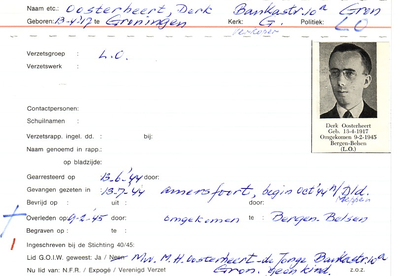 Naam etc.: Oosterheert, Derk Bankastr. 10a Gron
Geboren: 13-4-'17 te Groningen Kerk: G. Politiek: LO
Verzetsgroep : L.O.
Verzetswerk :
Contactpersonen:
Schuilnamen :
Verzetsrapp. ingel. dd. : bij:
Naam genoemd in rapp.:
op bladzijde:
Derk Oosterheert
Geb. 13-4-1917
Omgekomen 9-2-1945
Bergen-Belsen
(L.O.)
Gearresteerd op : 13-6-'44 door:
Gevangen gezeten in: 13-7-'44 Amersfoort, begin oct '44 n/Dld.
Bevrijd op : uit: door:
Overleden op: 9-2-'45 door: omgekomen te: Bergen-Belsen
Begraven op : te:
Ingeschreven bij de Stichting 40/45:
Lid G.O.I.W. geweest: Ja / Neen Mw. M.H. Oosterheert-de Jonge Bankastr. 10a
Nu lid van: N.F.R. / Expogé / Verenigd Verzet Gron. Geen kind. z.o.z.